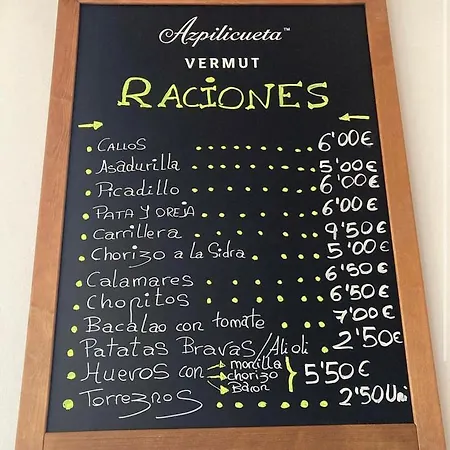 Azpilicueta™
VERMUT
RACIONES
CALLOS 6'00€
Asadurilla 5'00€
Picadillo 6'00€
PATA Y OREJA 6'00€
Carrillera 9'50€
Chorizo a la Sidra 5'00€
Calamares 6'50€
Chopitos 6'50€
Bacalao con tomate 7'00€
Patatas Bravas/Alioli 2'50€
Huevos con morcilla chorizo Bacon 5'50€
Torreznos 2'50Uni